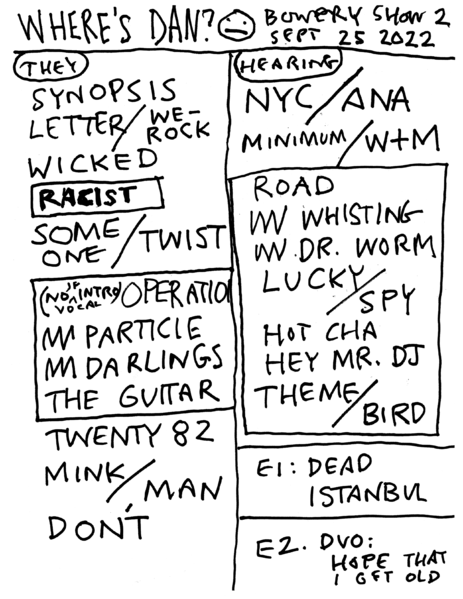 WHERE'S DAN? BOWERY SHOW 2
SEPT 25 2022
THEY
SYNOPSIS
LETTER/WE-
ROCK
WICKED
RACIST
SOME
ONE/TWIST
(NO JF INTRO
VOCAL)/OPERATIO
PARTICLE
DARLINGS
THE GUITAR
TWENTY 82
MINK/MAN
DON'T
HEARING
NYC/ANA
MINIMUM/W+M
ROAD
WHISTING
DR. WORM
LUCKY/
SPY
HOT CHA
HEY MR. DJ
THEME/
BIRD
E1: DEAD
ISTANBUL
E2. DVO:
HOPE THAT
I GET OLD